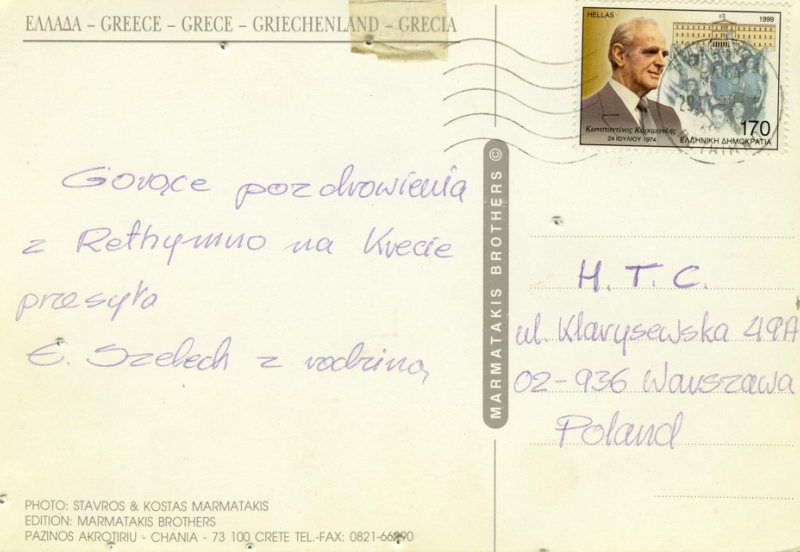 ΕΛΛΑΔΑ - GREECE - GRECE - GRIECHENLAND - GRECIA
HELLAS
1999
Κωνσταντίνος Καραμανλής
170
24 ΙΟΥΛΙΟΥ 1974
ΕΛΛΗΝΙΚΗ ΔΗΜΟΚΡΑΤΙΑ
Gorące pozdrowienia
z Rethymno na Krecie
przesyła
E. Szelech z rodziną
MARMATAKIS BROTHERS ©
H. T. C.
ul. Klarysewska 49A
02-936 Warszawa
Poland
PHOTO: STAVROS & KOSTAS MARMATAKIS
EDITION: MARMATAKIS BROTHERS
PAZINOS AKROTIRIU - CHANIA - 73 100 CRETE TEL.-FAX: 0821-66290